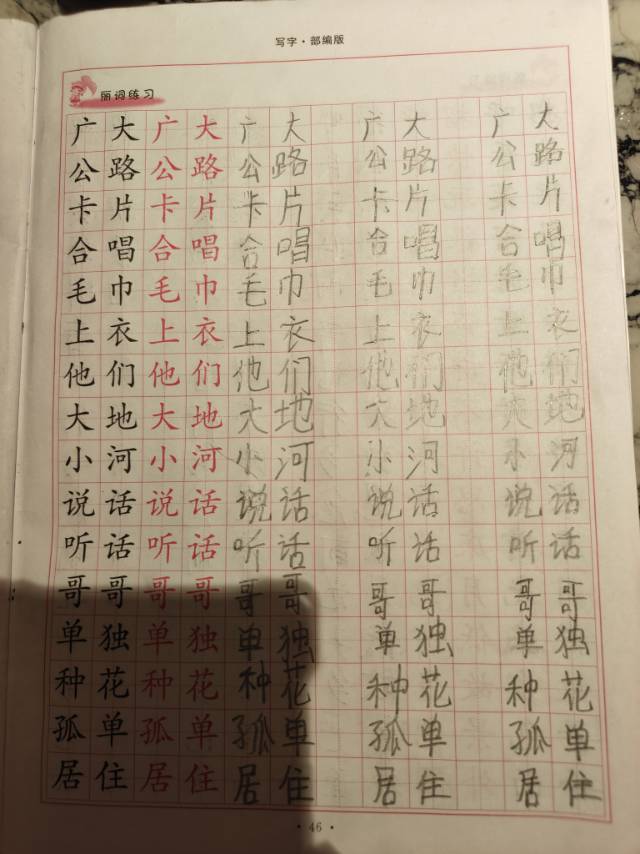 写字·部编版
丽词练习
广大广大广大广大广大
公路公路公路公路公路
卡片卡片卡片卡片卡片
合唱合唱合唱合唱合唱
毛巾毛巾毛巾毛巾毛巾
上衣上衣上衣上衣上衣
他们他们他们他们他们
大地大地大地大地大地
小河小河小河小河小河
说话说话说话说话说话
听话听话听话听话听话
哥哥哥哥哥哥哥哥哥哥
单独单独单独单独单独
种花种花种花种花种花
孤单孤单孤单孤单孤单
居住居住居住居住居住
·46·